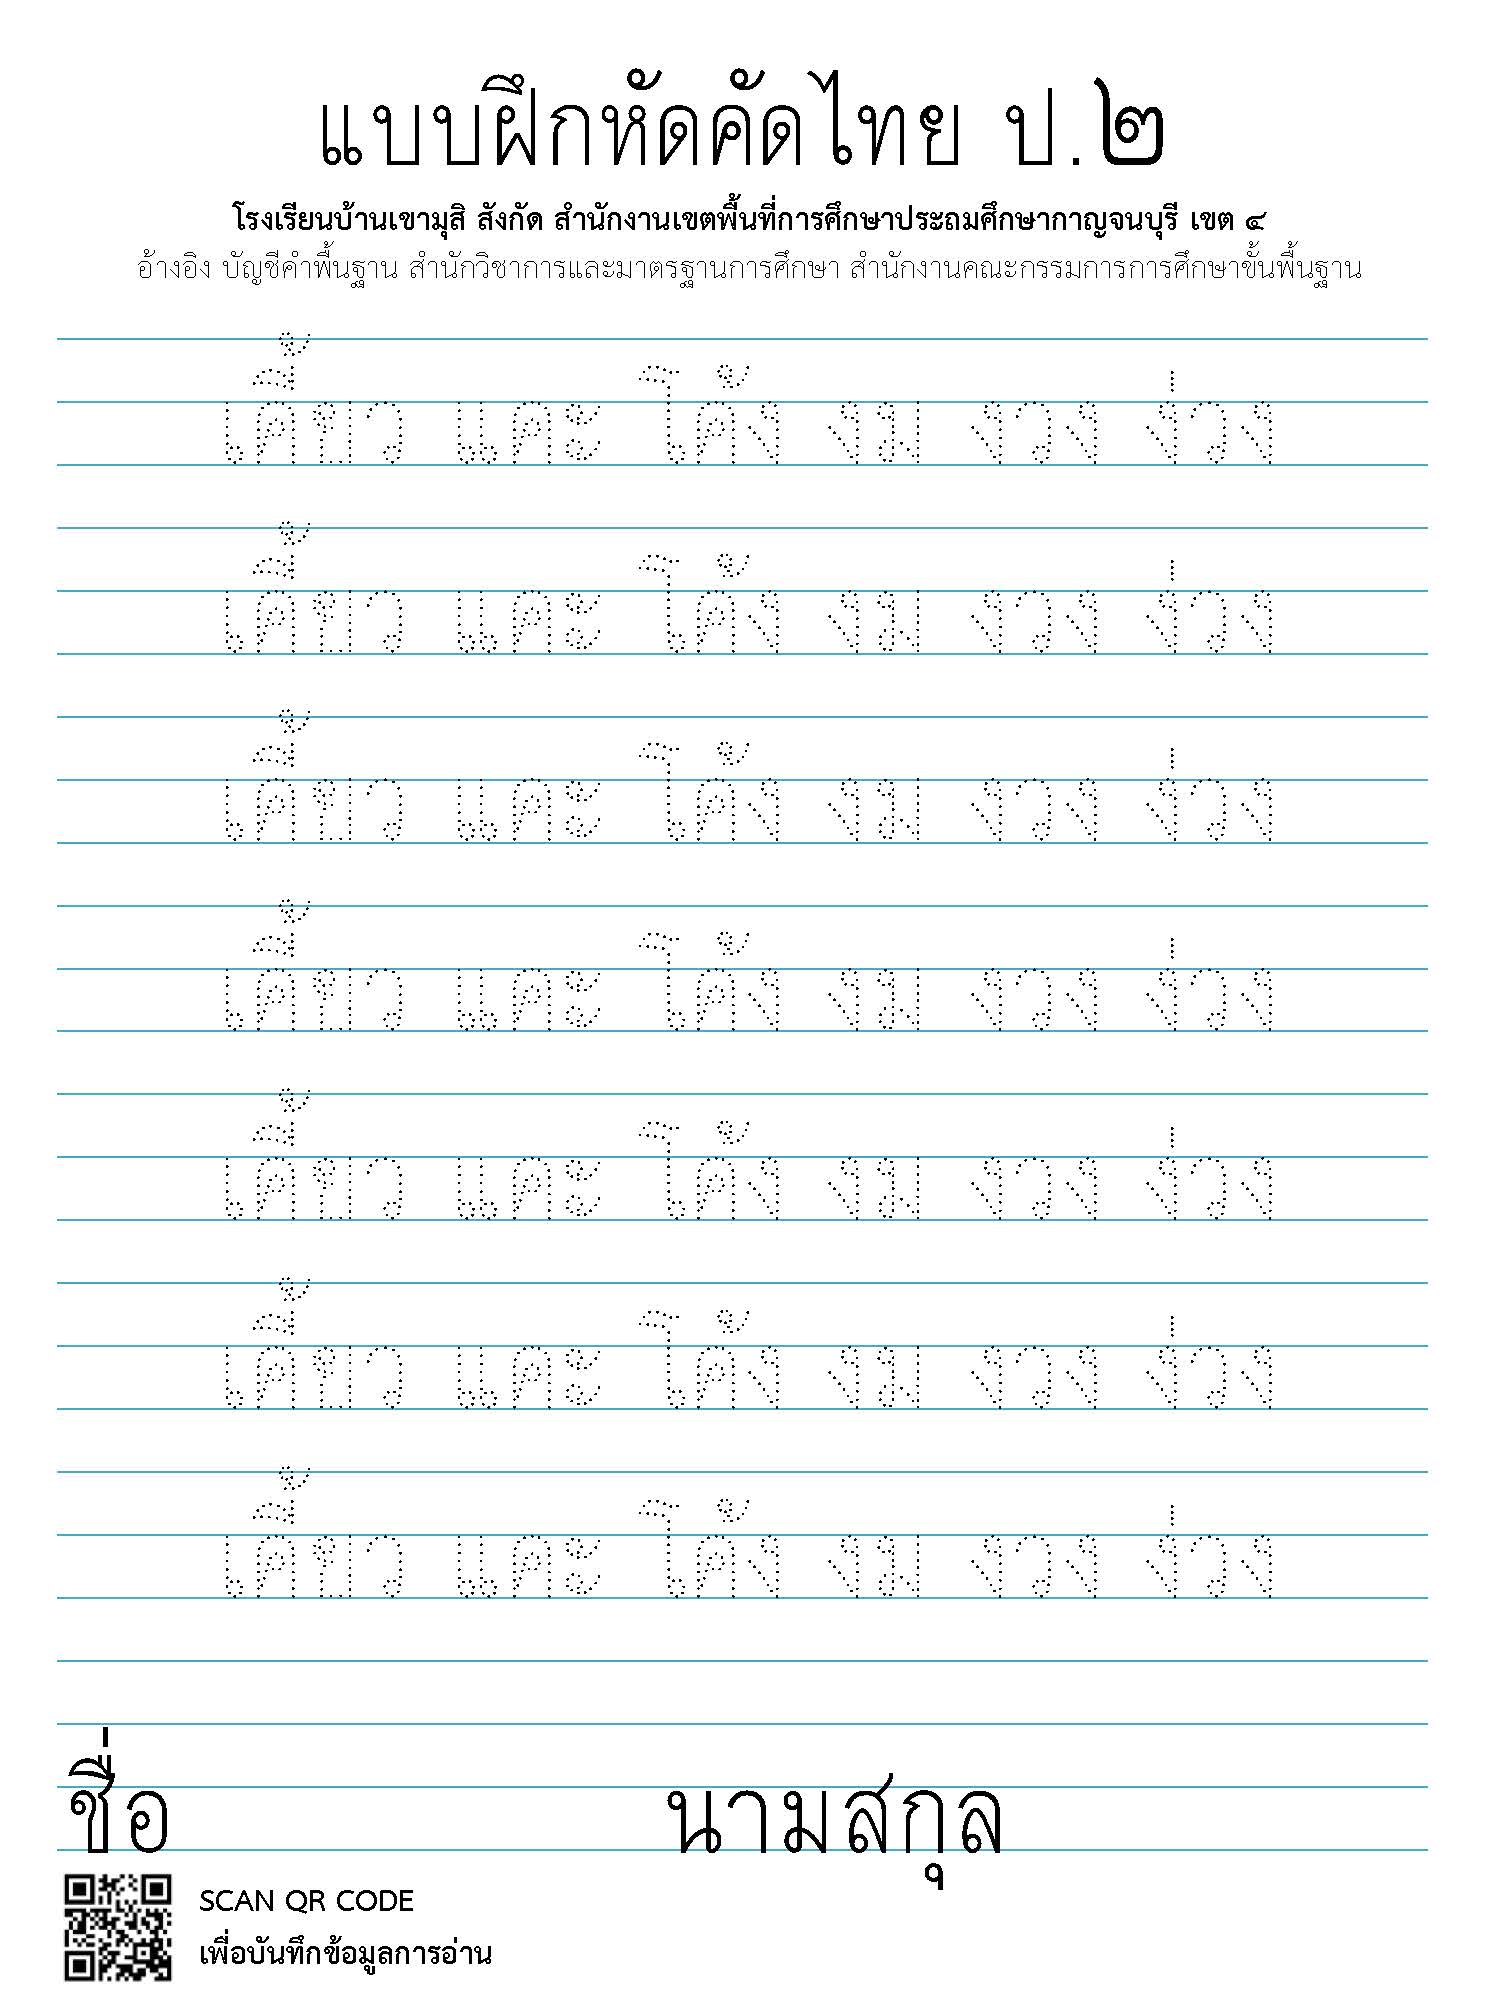 แบบฝึกหัดคัดไทย ป.๒
โรงเรียนบ้านเขามุสิ สังกัด สำนักงานเขตพื้นที่การศึกษาประถมศึกษากาญจนบุรี เขต ๔
อ้างอิง บัญชีคำพื้นฐาน สำนักวิชาการและมาตรฐานการศึกษา สำนักงานคณะกรรมการการศึกษาขั้นพื้นฐาน
เคี้ยว แคะ โค้ง งม งวง ง่วง
เคี้ยว แคะ โค้ง งม งวง ง่วง
เคี้ยว แคะ โค้ง งม งวง ง่วง
เคี้ยว แคะ โค้ง งม งวง ง่วง
เคี้ยว แคะ โค้ง งม งวง ง่วง
เคี้ยว แคะ โค้ง งม งวง ง่วง
เคี้ยว แคะ โค้ง งม งวง ง่วง
ชื่อ นามสกุล
SCAN QR CODE
เพื่อบันทึกข้อมูลการอ่าน